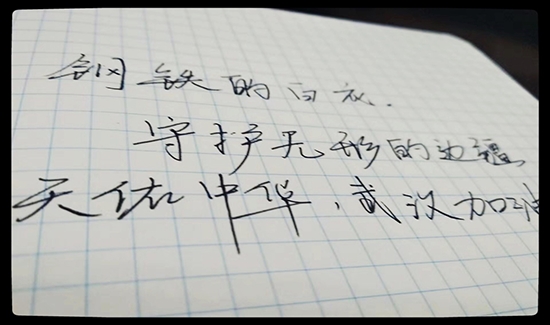 钢铁的白衣.
守护无形的边疆
天佑中华，武汉加油